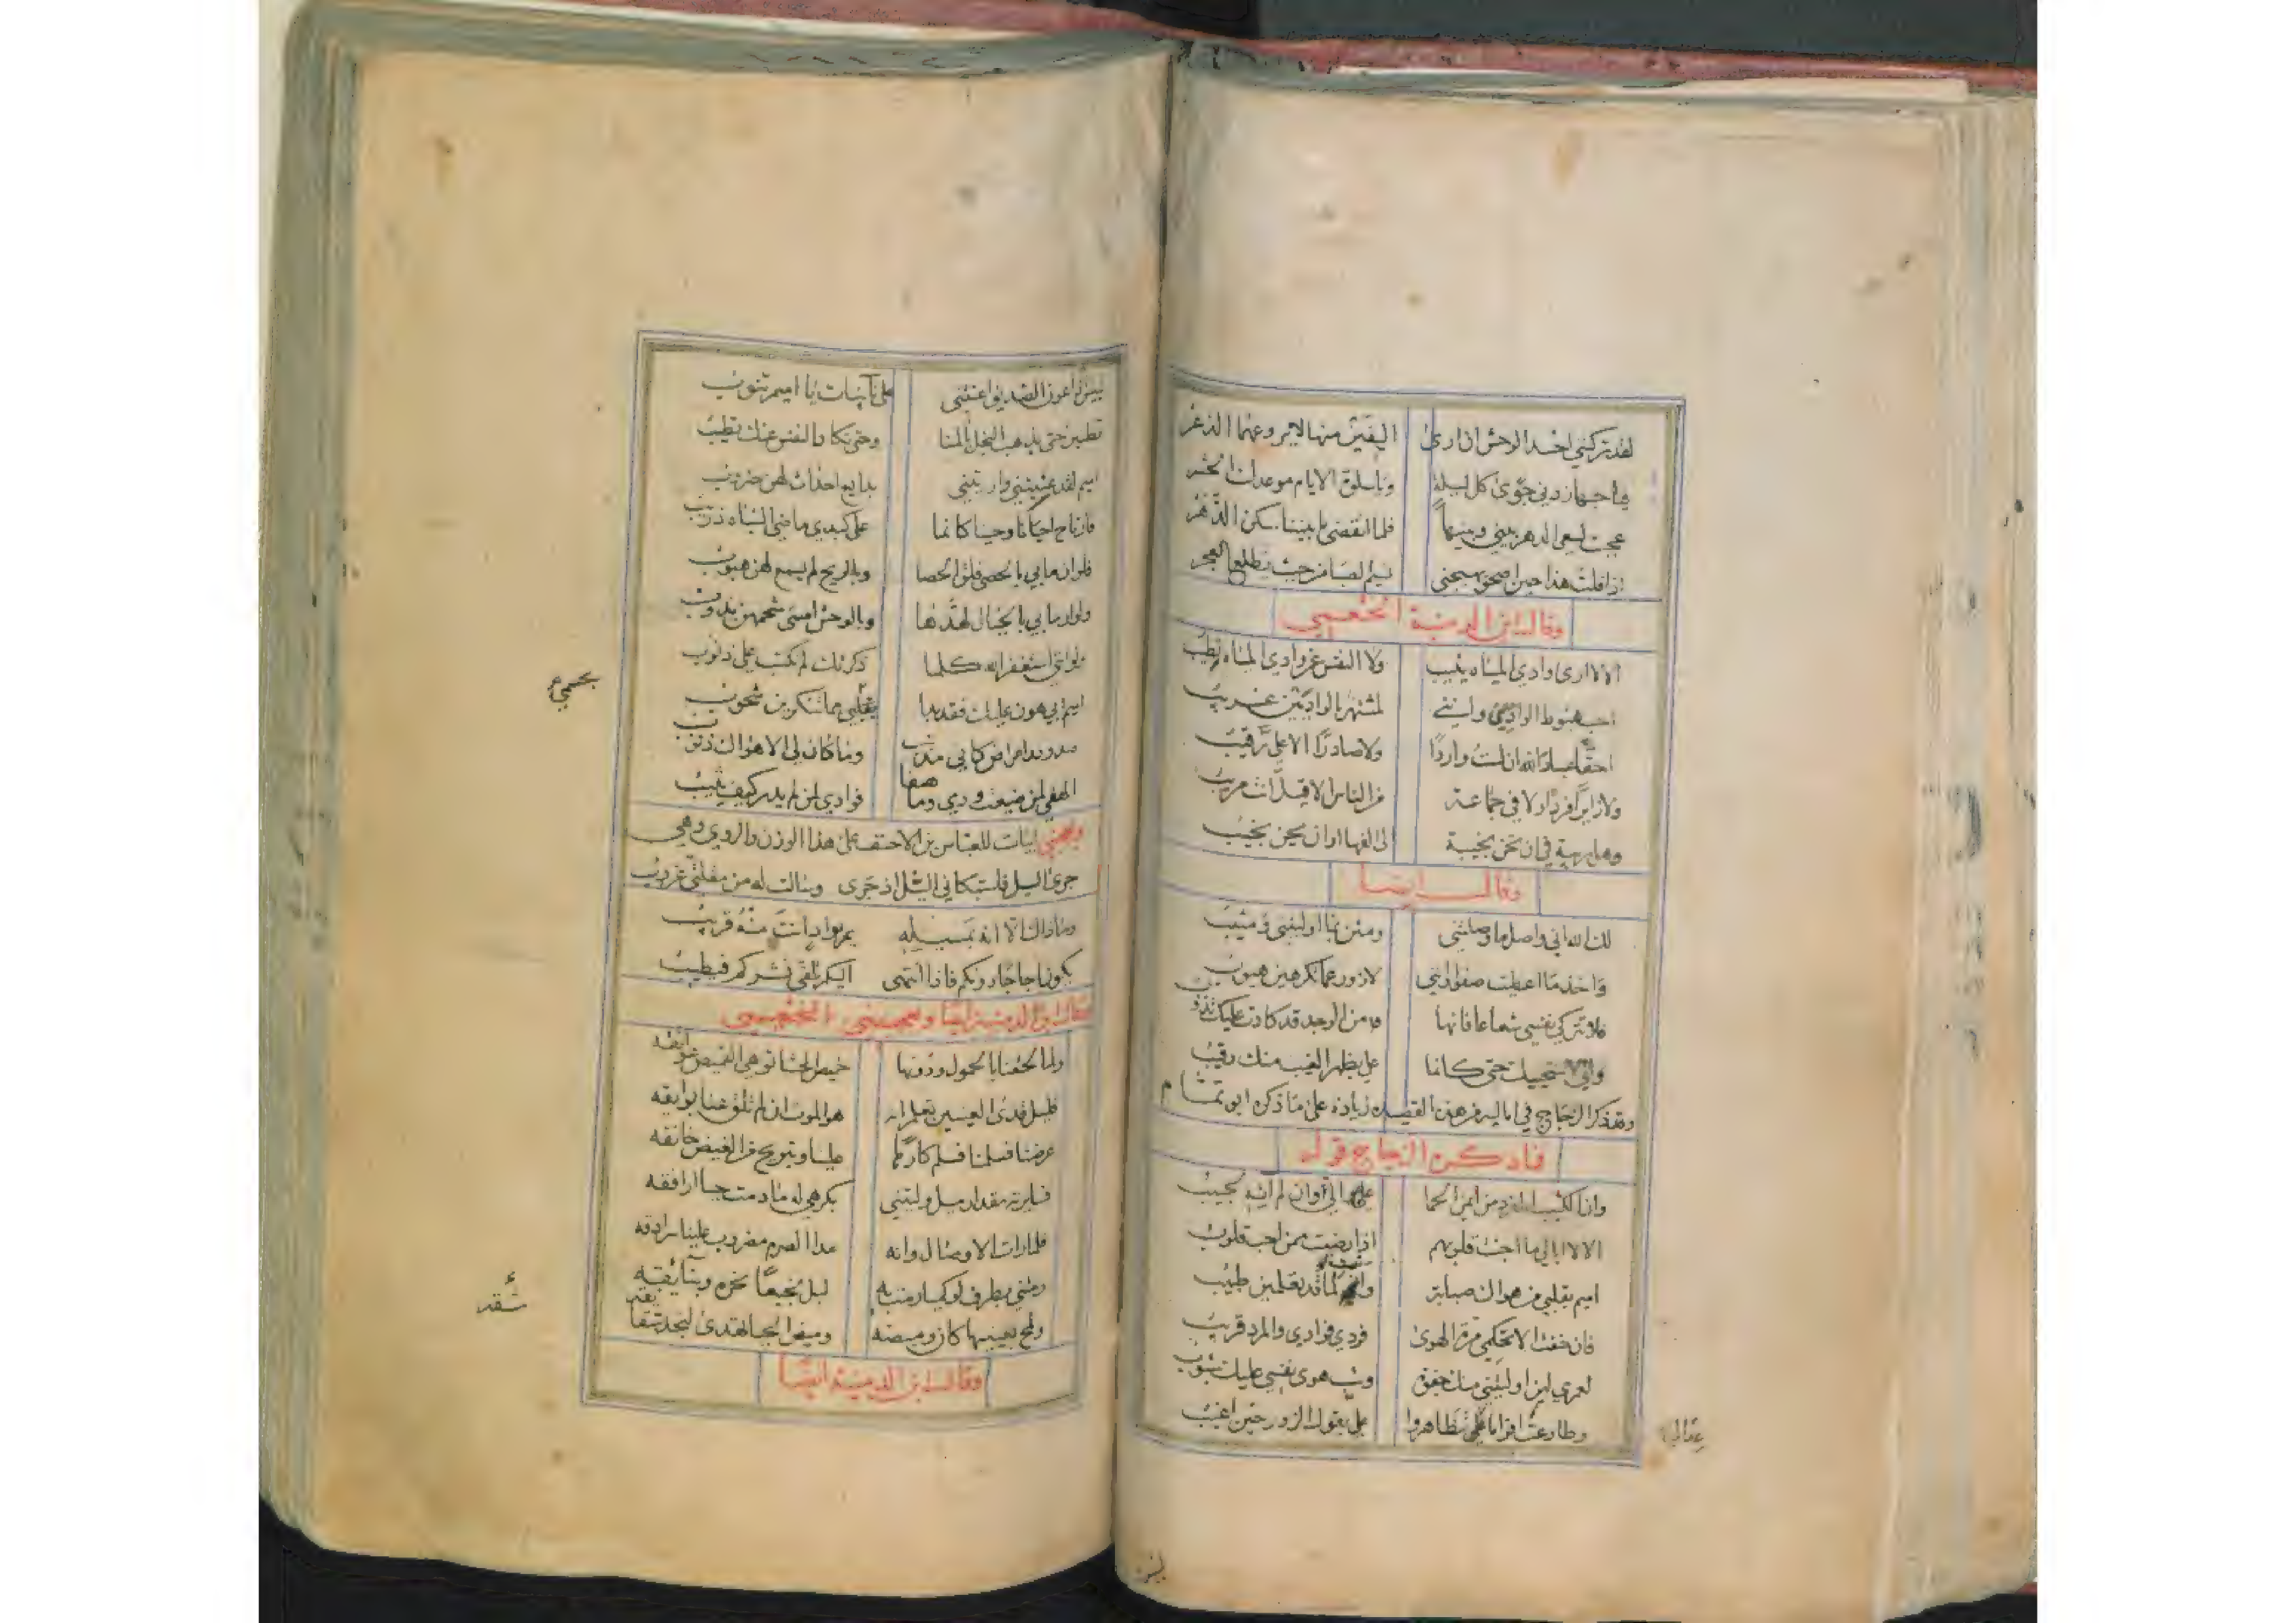 لقد تركتني احسد الوحش ان ارى اليفين منها لا يروعهما الذعر
فيا حبها زدني جوى كل ليلة ويا سلوة الايام موعدك الحشر
عجبت لسعى الدهر بيني وبينها فلما انقضى ما بيننا سكن الدهر
اذا قلت هذا حين اصحو يهيجني نسيم الصبا من حيث يطلع الفجر
وقال ابن الدمينة الخثعمي
الا لا ارى وادي المياه يثيب ولا النفس عن وادي المياه تطيب
احب هبوط الواديين وانني لمشتهر بالواديين غريب
احقا عباد الله ان لست واردا ولا صادرا الا علي رقيب
ولا زايرا فردا ولا في جماعة من الناس الا قيل انت مريب
وهل ريبة في ان تحن نجيبة الى الفها او ان يحن نجيب
وقال ايضا
لك الله اني واصل ما وصلتني ومثن بما اوليتني ومثيب
واخذ ما اعطيت صفوا وانني لازور عما تكرهين هيوب
فلا تتركي نفسي شعاعا فانها من الوجد قد كادت عليك تذوب
واني لاستحييك حتى كانما علي بظهر الغيب منك رقيب
وقد ذكر الزجاج في اماليه من هذه القصيدة زيادة على ما ذكره ابو تمام
فاد كر الزجاج قوله
وان الكثيب الفرد من ايمن الحما الي وان لم اته لحبيب
الا لا ابالي ما اجنت قلوبهم اذا رضيت ممن احب قلوب
اميم بقلبي من هواك صبابة وانت لها قد تعلمين طبيب
فان خفت الا تحكمي مرة الهوى فردي فوادي والمرد قريب
لعمري لئن اوليتني منك جفوة وشب هوى نفسي عليك شبوب
وطاوعت اقواما علي تظاهروا علي بقول الزور حين اغيب
لبئس اذا عون الصديق اعنتني على نائبات يا اميم تنوب
تطيبن حتى يذهب البخل بالمنا وحتى تكاد النفس عنك تطيب
اميم لقد عنيتني واريتني بدايع احداث لهن ضروب
فارتاح احيانا وحينا كانما على كبدي ماضي الشباة ذريب
فلو ان ما بي بالحصى فلق الحصا وبالريح لم يسمع لهن هبوب
ولو ان ما بي بالجبال لهدها وبالوحش امسى شحمهن يذوب
ولو انني استغفر الله كلما ذكرتك لم تكتب علي ذنوب
اميم ابي هون عليك فقد بدا بقلبي مما تنكرين شحوب
بجسمي
صدودا واعراضا كاني مذنب وما كان لي الا هواك ذنوب
الهفي لمن ضيعت ودي وما هفا فوادي لمن لم يدر كيف يثيب
ويعجبني ابيات للعباس بن الاحنف على هذا الوزن والروي وهي
جرى السيل فاستبكاني السيل اذ جرى وسالت له من مقلتي غروب
وما ذاك الا انه بمسيله يمر بواد انت منه قريب
يكون اجاجا دونكم فاذا انتهى اليكم تلقى نشركم فيطيب
وقال ابن الدمينة ايضا ويعجبني الخثعمي
ولما لحقنا بالحمول ودونها خميص الحشا توهي القميص عواتقه
قليل قذى العينين يعلم انه هو الموت ان لم تلق عنا بوايقه
عرضنا فسلمنا فسلم كارها علينا وتبريح من الغيض خانقه
فسايرته مقدار ميل وليتني بكرهي له ما دمت حيا ارافقه
فلما رات الا وصال وانه مدا الصرم مضروب علينا سرادقه
رمتني بطرف لو كميا رمت به لبل نجيعا نحره وبنايقه
ولمح بعينيها كان وميضه وميض الحيا تهدى لنجد شقايقه
وقال ابن الدمينة ايضا
لبئس